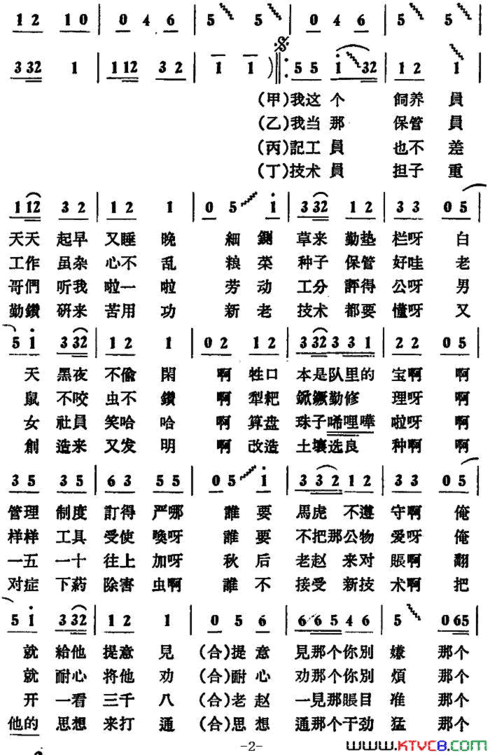 1 2 1 0 | 0 4 6 | 5 5 | 0 4 6 | 5 5
3 32 1 | 1 12 3 2 | 1 1 ) 5 5 i 32 | 1 2 1
(甲)我这个 飼养員
(乙)我当那 保管員
(丙)記工員 也不差
(丁)技术員 担子重
1 12 3 2 | 1 2 1 | 0 5 i | 3 32 1 2 | 3 2 0 5
天天 起早 又睡 晚 細 鍘 草来 勤垫 栏呀 白
工作 虽杂 心不 乱 粮 菜 种子 保管 好哇 老
哥們 听我 啦一 啦 劳 动 工分 評得 公呀 男
勤鑽 研来 苦用 功 新 老 技术 都要 懂呀 又
5 i 3 32 | 1 2 1 | 0 2 1 2 | 3 32 3 3 1 | 2 2 0 5
天 黑夜 不偷 閑 啊 牲口 本是队里的 宝啊 啊
鼠 不咬 虫不 鑽 啊 犁耙 鍁鐝勤修 理呀 啊
女 社員 笑哈 哈 啊 算盘 珠子唏哩嘩 啦呀 啊
創 造来 又发 明 啊 改造 土壤选良 种啊 啊
3 5 3 5 | 6 3 5 5 | 0 5 i | 3 32 1 2 | 3 3 0 5
管理 制度 訂得 严哪 誰 要 馬虎 不遵 守啊 俺
样样 工具 受使 喚呀 誰 要 不把那公物 爱呀 俺
一五 一十 往上 加呀 秋 后 老赵 来对 賬啊 翻
对症 下葯 除害 虫啊 誰 不 接受 新技 术啊 把
5 i 3 32 | 1 2 1 | 0 5 6 | 6 6 5 4 6 | 5 0 65
就 給他 提意 見 (合)提意 見那个你別 嫌 那个
就 耐心 将他 劝 (合)耐心 劝那个你別 煩 那个
开 一看 三千 八 (合)老赵 一見那賬目 准 那个
他的 思想 来打 通 (合)思想 通那个干劲 猛 那个
—2—
www.KTVC8.com